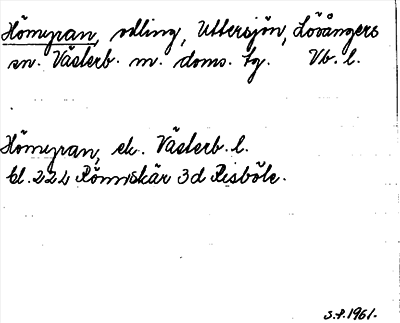 Hömyran, odling, Uttersjön, Lövångers
sn. Västerb. m. doms. tg. Vb. l.
Hömyran, ek. Västerb. l.
bl. 22L Rönnskär 3d Risböle.
S.P. 1961.